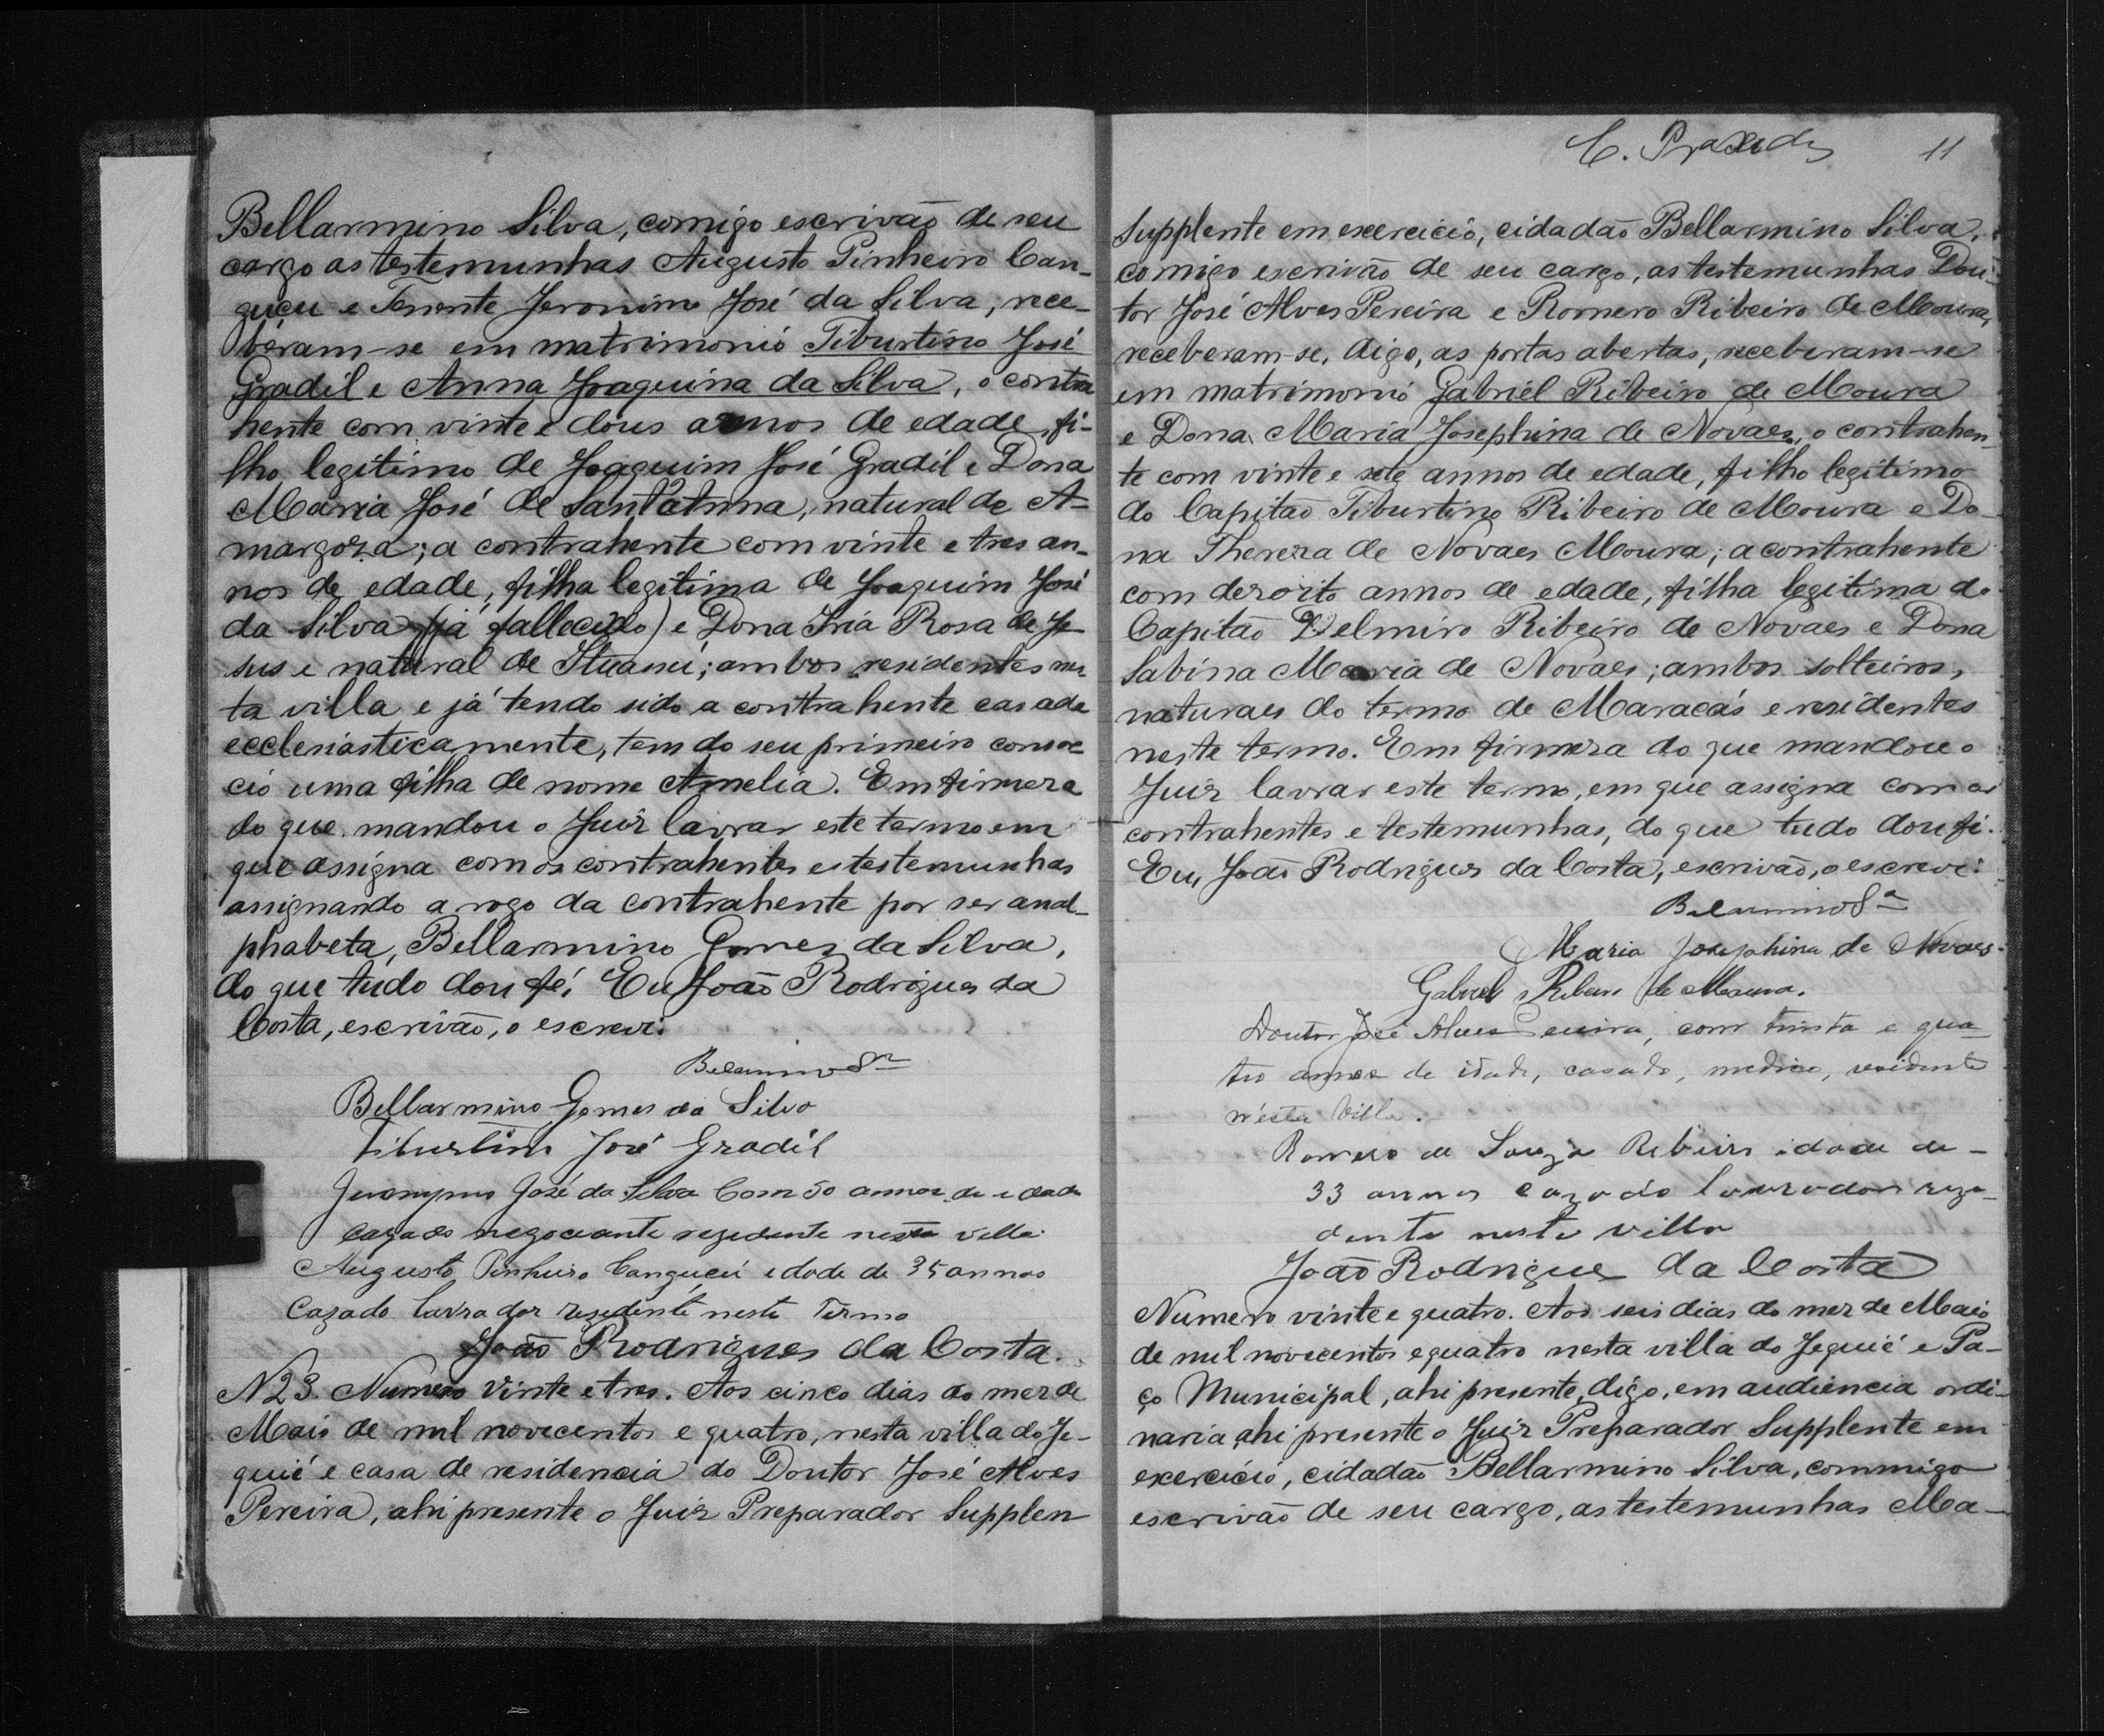 Bellarmino Silva, comigo escrivão de seu
cargo as testemunhas Augusto Pinheiro Can-
guçu e Tenente Jeronimo José da Silva, rece-
beram-se em matrimonio Tiburtino José
Gradil e Anna Joaquina da Silva, o contra
hente com vinte e dous annos de edade, fi-
lho legitimo de Joaquim José Gradil e Dona
Maria José de Sant'Anna, natural de A-
margoza; a contrahente com vinte e tres an-
nos de edade, filha legitima de Joaquim José
da Silva (já fallecido) e Dona Iria Rosa de Je
sus e natural de Ituassú; ambos residentes nes
ta villa e já tendo sido a contrahente casada
ecclesiasticamente, tem do seu primeiro consor
cio uma filha de nome Amelia. Em firmeza
do que mandou o Juiz lavrar este termo em
que assigna com os contrahentes e testemunhas
assignando a rogo da contrahente por ser anal-
phabeta, Bellarmino Gomes da Silva,
do que tudo dou fé. Eu João Rodrigues da
Costa, escrivão, o escrevi.
Belarmino Sa
Bellarmino Gomes da Silva
Tiburtino José Gradil
Jeronymo José da Silva Com 50 annos de idade
cazado negociante rezidente nesta villa
Augusto Pinheiro Canguçú edade de 35 annos
Cazado lavrador residente neste Termo
João Rodrigues da Costa.
N 23. Numero vinte e tres. Aos cinco dias do mez de
Maio de mil novecentos e quatro, nesta villa do Je-
quié e casa de residencia do Doutor José Alves
Pereira, ahi presente o Juiz Preparador Supplen
C. Praxedes 11
Supplente em exercicio, cidadão Bellarmino Silva,
comigo escrivão de seu cargo, as testemunhas Dou-
tor José Alves Pereira e Romero Ribeiro de Moura,
receberam-se, digo, as portas abertas, receberam-se
em matrimonio Gabriel Ribeiro de Moura
e Dona Maria Josephina de Novaes, o contrahen-
te com vinte e sete annos de edade, filho legitimo
do Capitão Tiburtino Ribeiro de Moura e Do-
na Thereza de Novaes Moura; a contrahente
com dezoito annos de edade, filha legitima do
Capitão Delmiro Ribeiro de Novaes e Dona
Sabina Maria de Novaes; ambos solteiros,
naturaes do termo de Maracás e residentes
neste termo. Em firmeza do que mandou o
Juiz lavrar este termo, em que assigna com os
contrahentes e testemunhas, do que tudo dou fé.
Eu, João Rodrigues da Costa, escrivão, o escrevi.
Belarmino Sa
Maria Josephina de Novaes.
Gabriel Ribeiro de Moura.
Doutor José Alves Pereira, com trinta e qua-
tro annos de idade, casado, medico, residente
n'esta Villa.
Romero de Souza Ribeiro idade de -
33 annos cazado lavrador rezi-
dente nesta villa
João Rodrigues da Costa
Numero vinte e quatro. Aos seis dias do mez de Maio
de mil novecentos e quatro nesta villa do Jequié e Pa-
ço Municipal, ahi presente, digo, em audiencia ordi-
naria ahi presente o Juiz Preparador Supplente em
exercicio, cidadão Bellarmino Silva, commigo
escrivão de seu cargo, as testemunhas Ma-